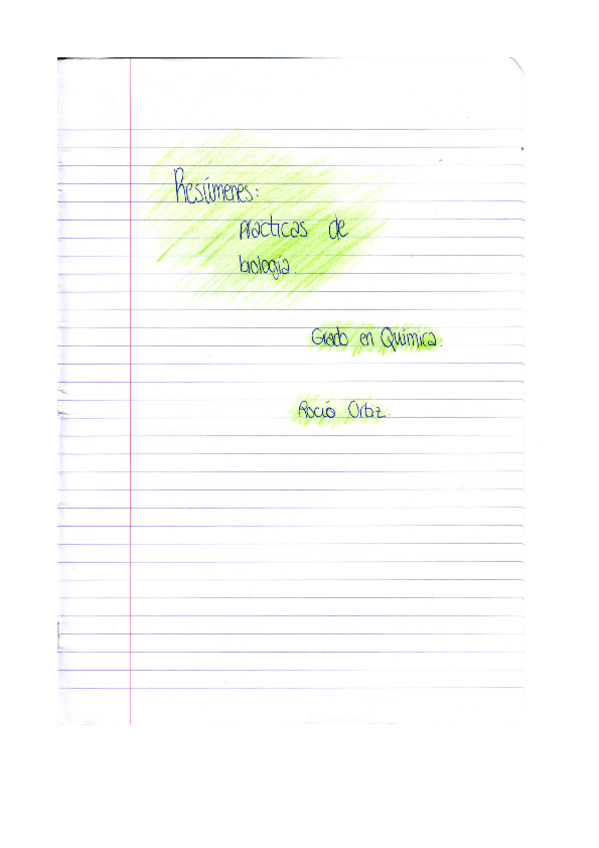 Resúmenes:
practicas de
biología.
Grado en Química.
Rocío Ortiz.